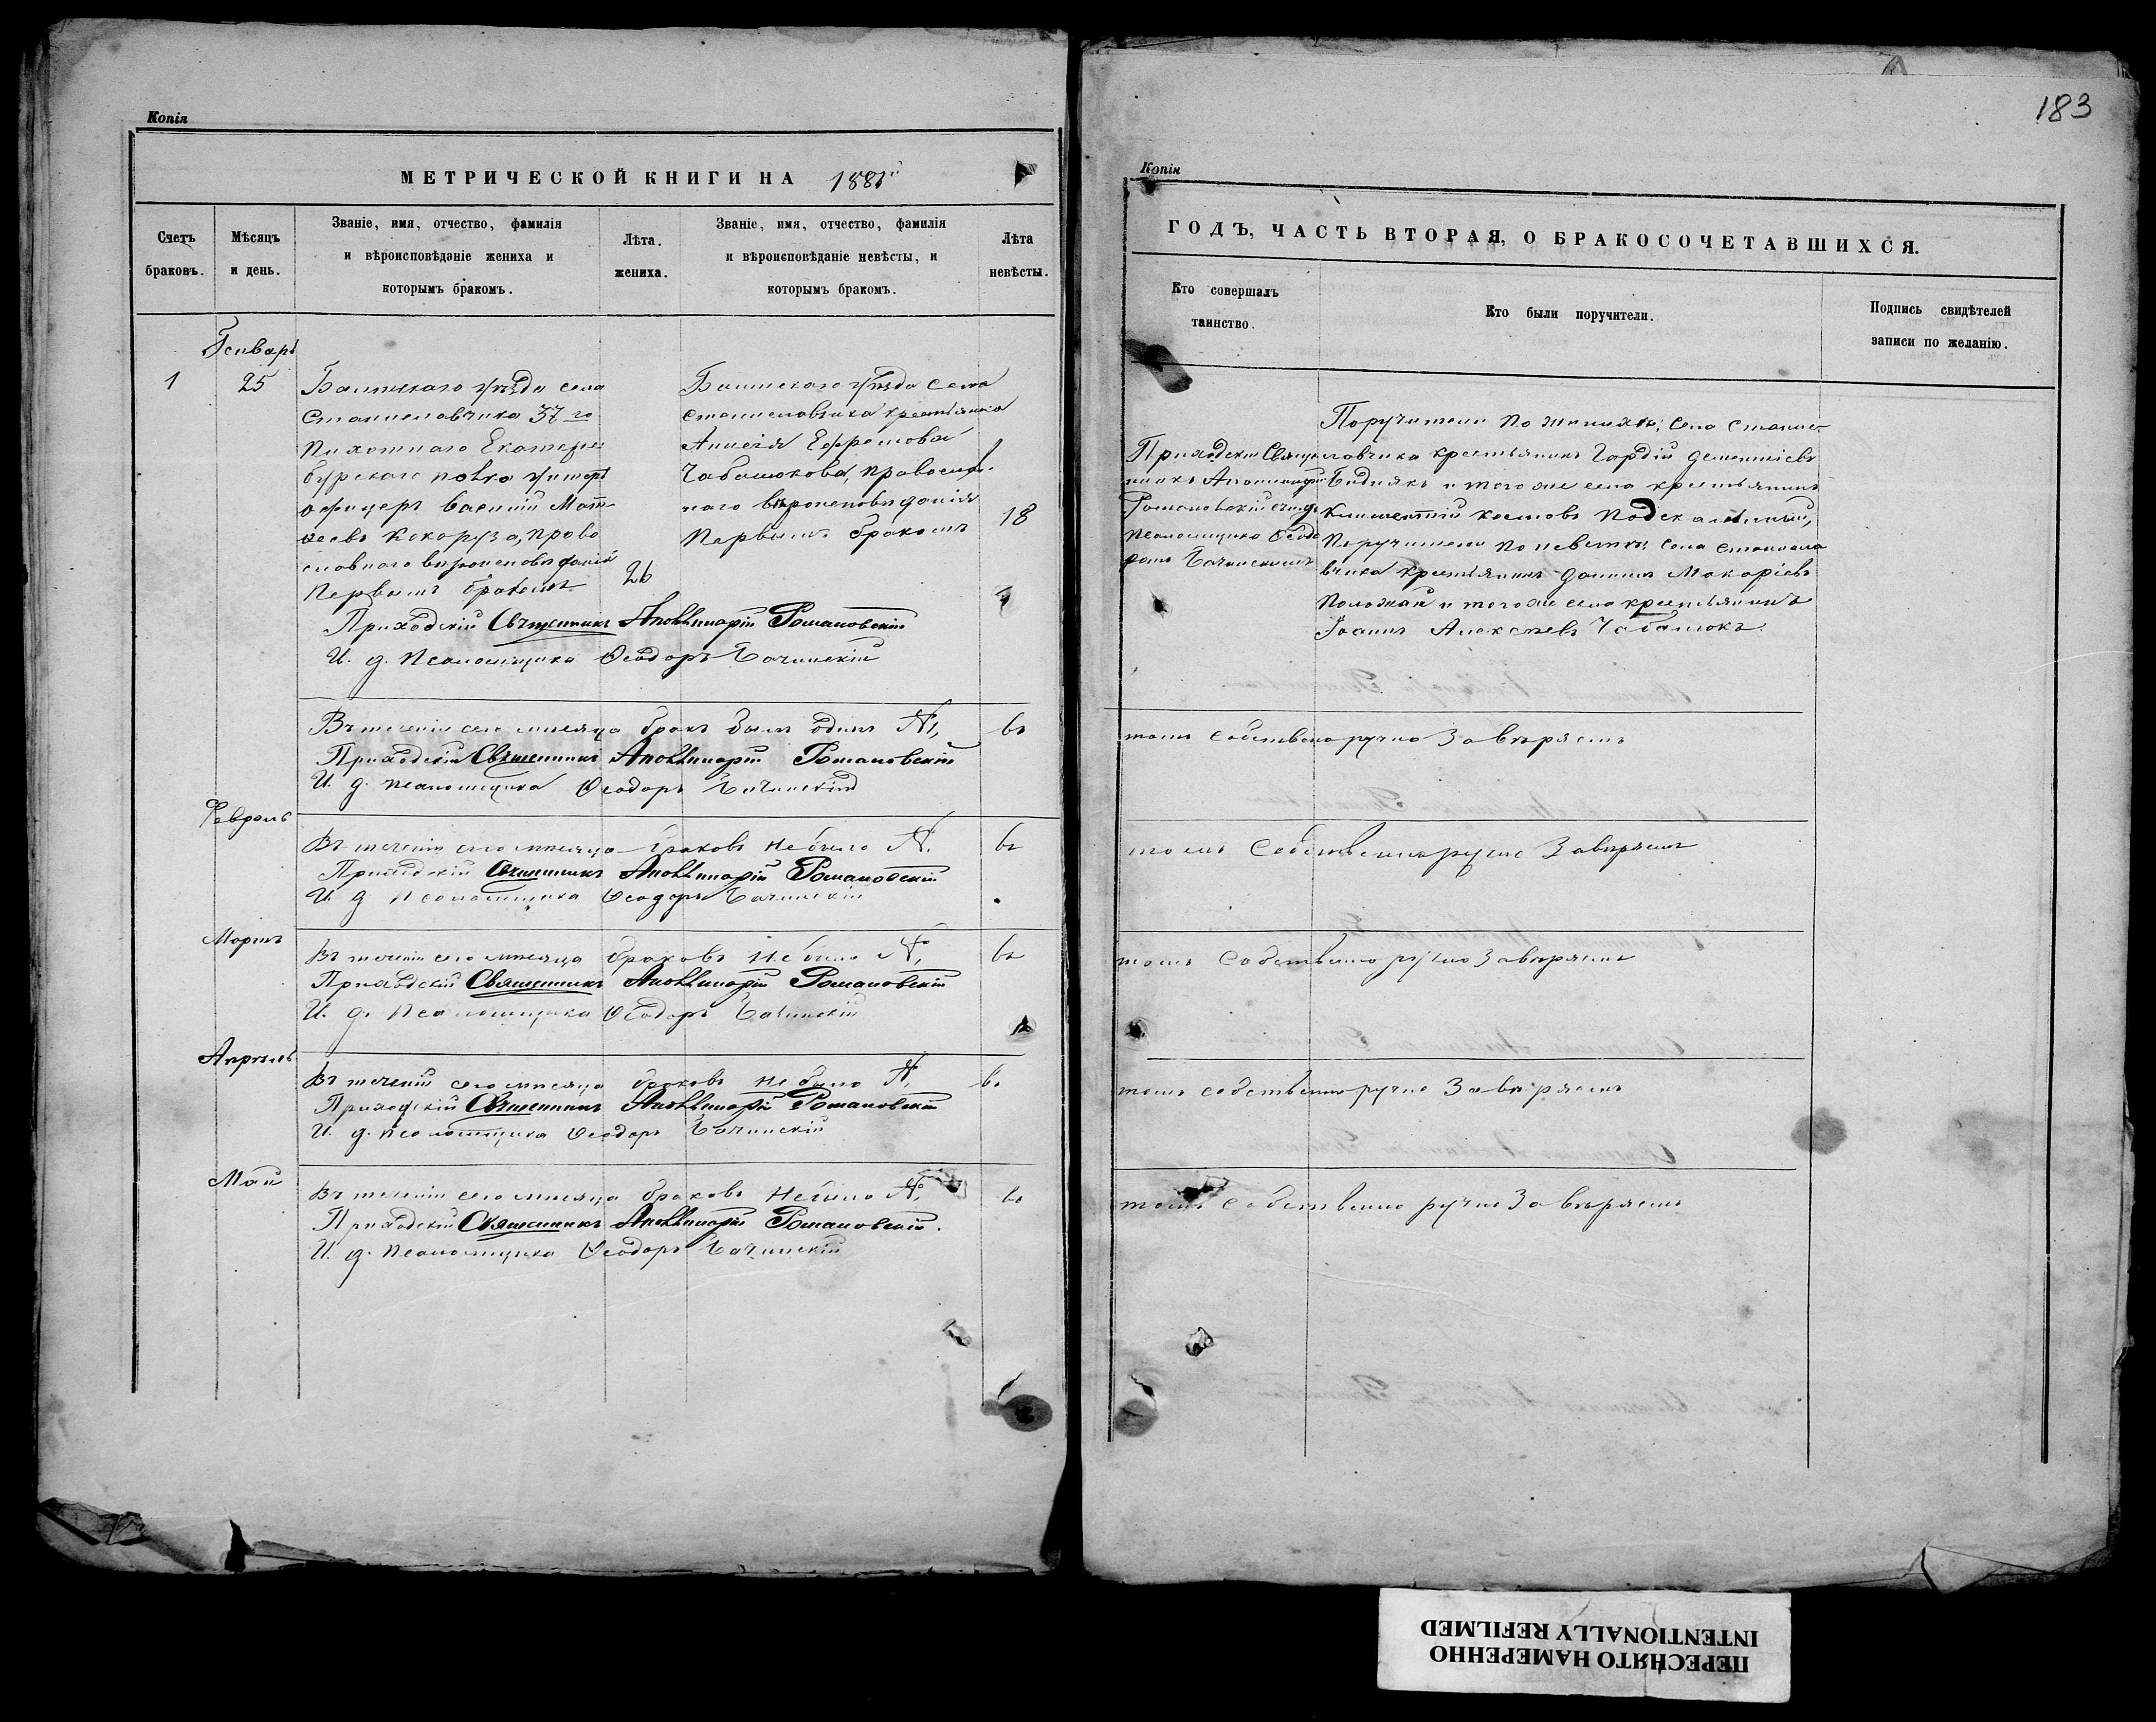 183
Копія
МЕТРИЧЕСКОЙ КНИГИ НА 1881
Счетъ браковъ.
Мѣсяцъ и день.
Званіе, имя, отчество, фамилія
и вѣроисповѣданіе жениха и
которымъ бракомъ.
Лѣта.
жениха.
Званіе, имя, отчество, фамилія
и вѣроисповѣданіе невѣсты, и
которымъ бракомъ.
Лѣта
невѣсты.
Генварь
1
25
Балтскаго уѣзда села
Станиславчика 37го
Пихотнаго Екатерен
бурскаго полка унтеръ
офицеръ Василій Мат
веевъ Кокоруза, право
славнаго вѣроисповѣданія
Первымъ бракомъ
26
Балтскаго уѣзда села
Станиславчика крестьянка
Анисія Ефремова
Чабанюкова, православ
наго вѣроисповѣданія
Первымъ бракомъ
18
Приходскій Священникъ Аполлинарій Романовскій
И. д. Псаломщика Ѳеодоръ Бачинскій
Въ теченіи сего мѣсяца бракъ былъ одинъ №1, въ
Приходскій Священникъ Аполлинарій Романовскій
И. д. псаломщика Ѳеодоръ Бачинскій
Февраль
Въ теченіи сего мѣсяца браковъ небыло №. въ
Приходскій Священникъ Аполлинарій Романовскій
И. д. Псаломщика Ѳеодоръ Бачинскій
Мартъ
Въ теченіи сего мѣсяца браковъ небыло №, въ
Приходскій Священникъ Аполлинарій Романовскій
И. д. Псаломщика Ѳеодоръ Бачинскій
Апрѣль
Въ теченіи сего мѣсяца браковъ небыло №, въ
Приходскій Священникъ Аполлинарій Романовскій
И. д. псаломщика Ѳеодоръ Бачинскій
Май
Въ теченіи сего мѣсяца браковъ небыло №, въ
Приходскій Священникъ Аполлинарій Романовскій.
И. д. псаломщика Ѳеодоръ Бачинскій
Копія
ГОДЪ, ЧАСТЬ ВТОРАЯ, О БРАКОСОЧЕТАВШИХСЯ.
Кто совершалъ
таинство.
Кто были поручители.
Подпись свидѣтелей
записи по желанію.
Приходскій Свяще
нникъ Аполлинарій
Романовскій съ и. д.
псаломщика Ѳеодо
ромъ Бачинскимъ
Поручители по жениху: села Станис
лавчика крестьянинъ Гордій Дементіевъ
Бидnякъ и того же села крестьянинъ
Климентій Космовъ Подскальный,
Поручители по невѣсты: села Станисла
вчика крестьянинъ Данилъ Макаріевъ
Положай и того же села крестьянинъ
Іоаннъ Алексѣевъ Чабанюкъ.
томъ собственоручно Завѣряемъ
томъ Собственоручно Завѣряемъ
томъ Собственоручно Завѣряемъ
томъ собственоручно Завѣряемъ
томъ собственно ручно Завѣряемъ
ПЕРЕСНЯТО НАМЕРЕННО
INTENTIONALLY REFILMED